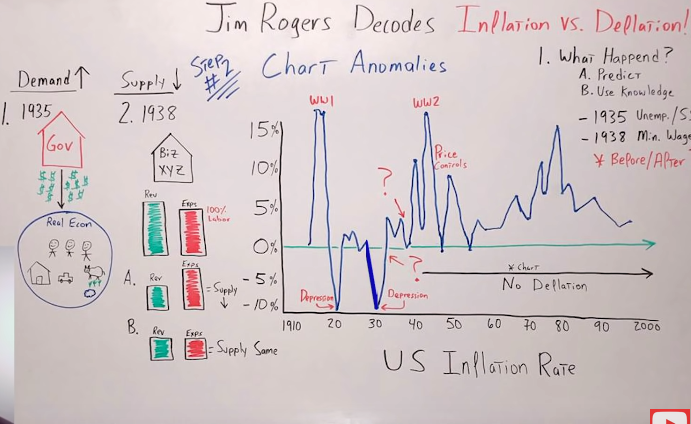 Jim Rogers Decodes Inflation vs. Deflation!
Step
#2
Chart Anomalies
Demand ↑
1. 1935
Gov
$ $ $
Real Econ
Supply ↓
2. 1938
Biz
XYZ
Rev
Exps
100%
Labor
A.
Rev
Exps
= Supply
↓
B.
Rev
Exps
= Supply Same
1. What Happend?
A. Predict
B. Use Knowledge
- 1935 Unemp./S
- 1938 Min. Wag
* Before/After
WW1
WW2
Price
Controls
?
?
15%
10%
5%
0%
-5%
-10%
Depression
Depression
* Chart
No Deflation
1910
20
30
40
50
60
70
80
90
2000
US Inflation Rate